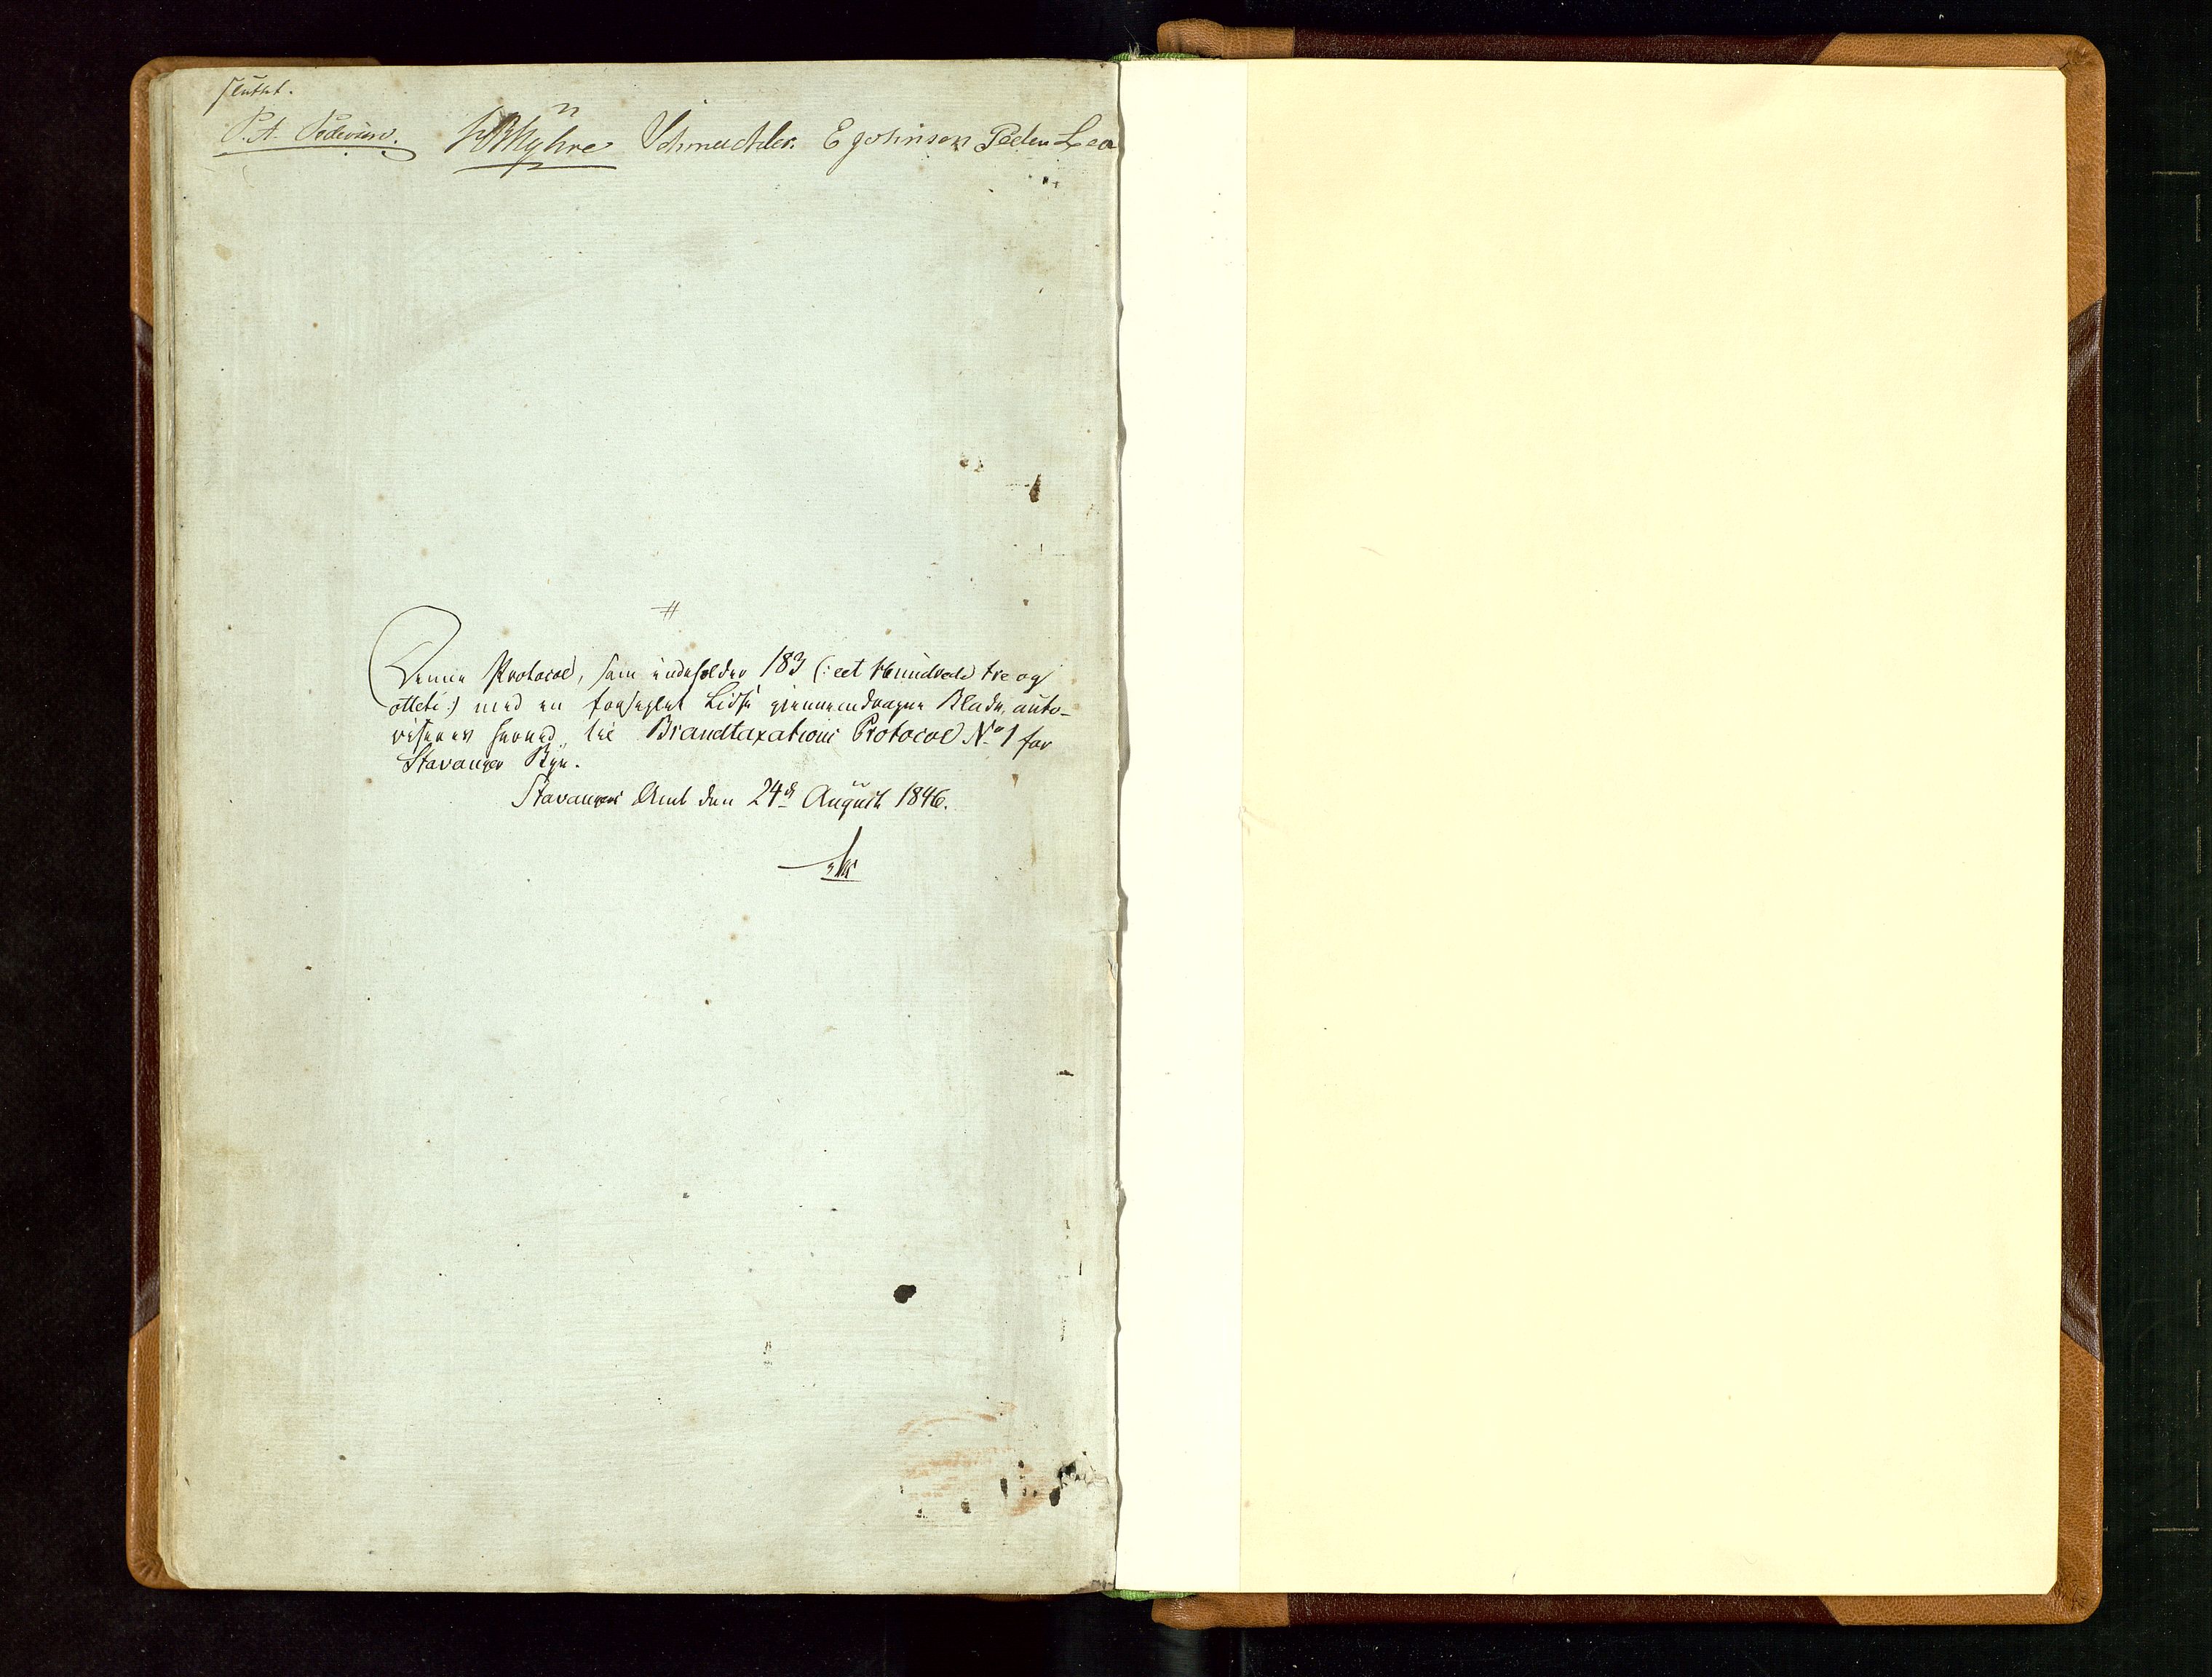 sluttet.
P. A. Pedersen. Myhre Schmeckler. E Johnson Peder Lea
Denne Protocol, som indeholder 183 (: eet Hundrede tre og
otteti :) med en forseglet Lidse gjennemdragne Blade, auto-
riseres herved til Brandtaxations Protocol No 1 for
Stavanger Bye.
Stavanger Amt den 24de August 1846.